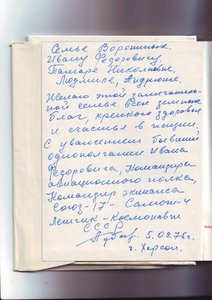 Семье Воронинок.
Ивану Федоровичу,
Тамаре Николаевне,
Людмиле, Андрюше,
Желаю этой замечатель-
ной семье всех земных
благ, крепкого здоровья
и счастья в жизни,
С уважением бывший
однополчанин Ивана
Федоровича, Командир
авиационного полка,
Командир экипажа
Союз-17 - Салют-4
Летчик-Космонавт
СССР
5.09.76г.
г. Херсон.